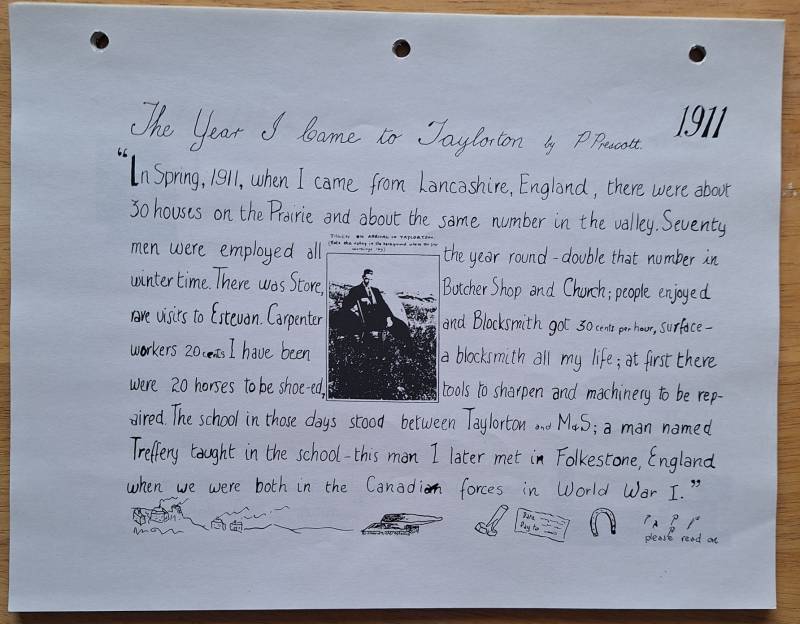 The Year I Came to Taylorton by P Prescott. 1911
"In Spring, 1911, when I came from Lancashire, England, there were about
30 houses on the Prairie and about the same number in the valley. Seventy
TAKEN ON ARRIVAL IN TAYLORTON.
men were employed all the year round - double that number in
winter time. There was Store, Butcher Shop and Church; people enjoyed
rare visits to Estevan. Carpenter and Blocksmith got 30 cents per hour, surface-
workers 20 cents I have been a blocksmith all my life; at first there
were 20 horses to be shoe-ed, tools to sharpen and machinery to be rep-
aired. The school in those days stood between Taylorton and M&S; a man named
Treffery taught in the school - this man I later met in Folkestone, England
when we were both in the Canadian forces in World War I."
Date
Pay to
please read on